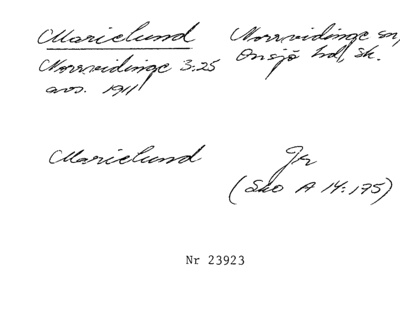 Marielund Norrvidinge sn,
Norrvidinge 3:25 Onsjö hd, Sk.
avs. 1911
Marielund Jr
(Sko A 14:175)
Nr 23923